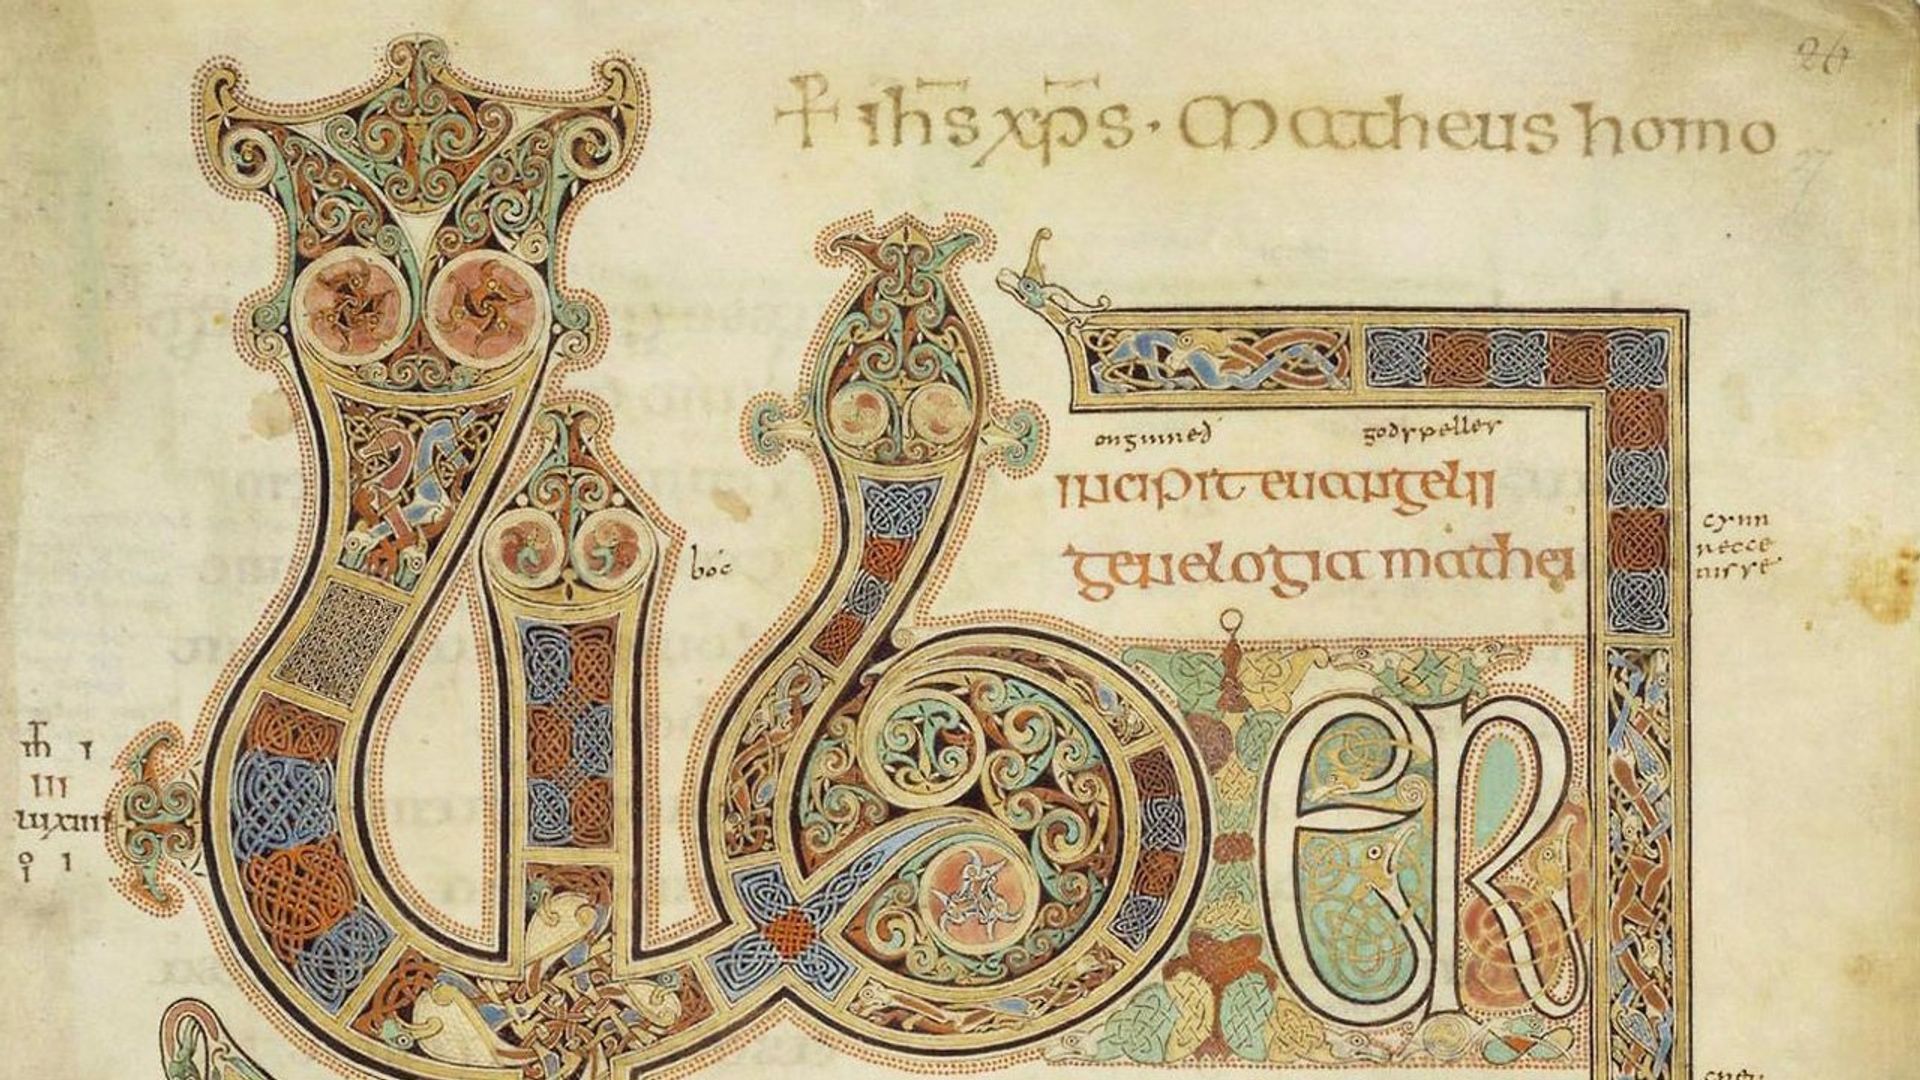 26
+ ihs xps · Matheus homo
27
onginneð godspelles
incipit euangelii
genelogia mathei
bóc
cynn
recce
nisse
LIBER
m I
III